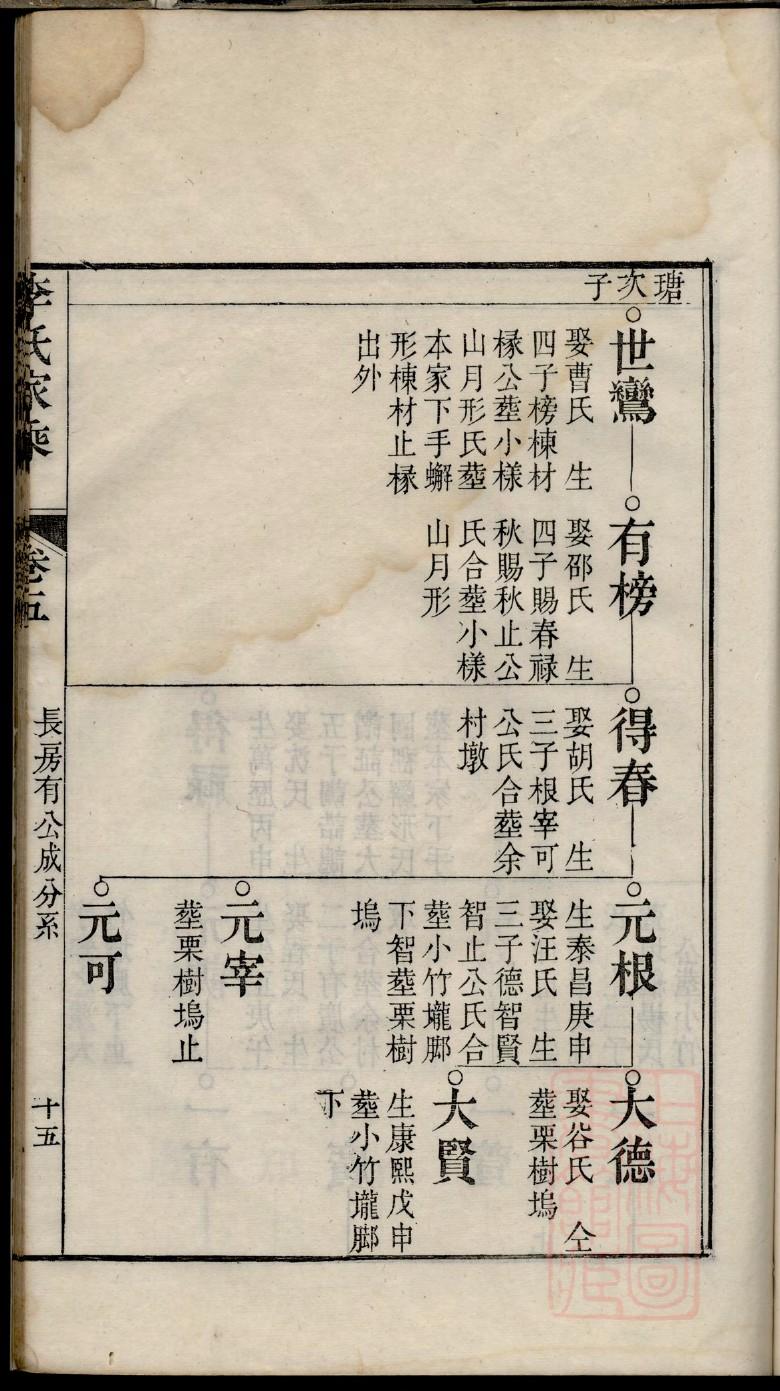 瑭次子
世鸞
娶曹氏　生
四子榜棟材
椽公塟小樣
山月形氏塟
本家下手蠏
形棟材止椽
出外
有榜
娶邵氏　生
四子賜春祿
秋賜秋止公
氏合塟小樣
山月形
得春
娶胡氏　生
三子根宰可
公氏合塟余
村墩
元根
生泰昌庚申
娶汪氏　生
三子德智賢
智止公氏合
塟小竹壠腳
下智塟栗樹
塢
元宰
塟栗樹塢止
元可
大德
娶谷氏　仝
塟栗樹塢
大賢
生康熙戊申
塟小竹壠腳
下
李氏家乘
卷五
長房有公成分系
十五